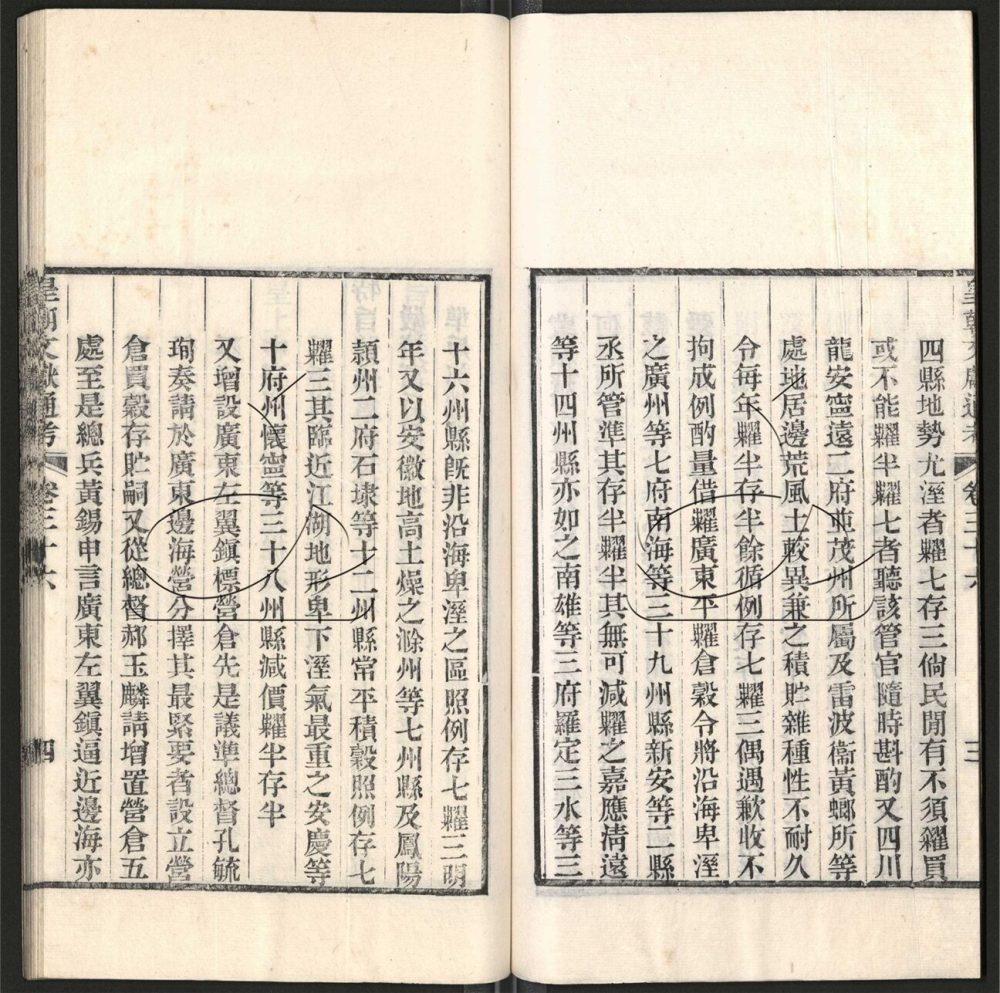 皇朝文獻通考 卷三十六 三
四縣地勢尤溼者糶七存三倘民閒有不須糴買
或不能糶半糶七者聽該管官隨時斟酌又四川
龍安寧遠二府並茂州所屬及雷波衞黃螂所等
處地居邊荒風土較異兼之積貯雜種性不耐久
令每年糶半存半餘循例存七糶三偶遇歉收不
拘成例酌量借糶廣東平糶倉穀令將沿海卑溼
之廣州等七府南海等三十九州縣新安等二縣
丞所管準其存半糶半其無可減糶之嘉應淸遠
等十四州縣亦如之南雄等三府羅定三水等三
十六州縣旣非沿海卑溼之區照例存七糶三明
年又以安徽地高土燥之滁州等七州縣及鳳陽
潁州二府石埭等十二州縣常平積穀照例存七
糶三其臨近江湖地形卑下溼氣最重之安慶等
十府州懷寧等三十八州縣減價糶半存半
又增設廣東左翼鎭標營倉先是議準總督孔毓
珣奏請於廣東邊海營分擇其最緊要者設立營
倉買穀存貯嗣又從總督郝玉麟請增置營倉五
處至是總兵黃錫申言廣東左翼鎭逼近邊海亦
皇朝文獻通考 卷三十六 四